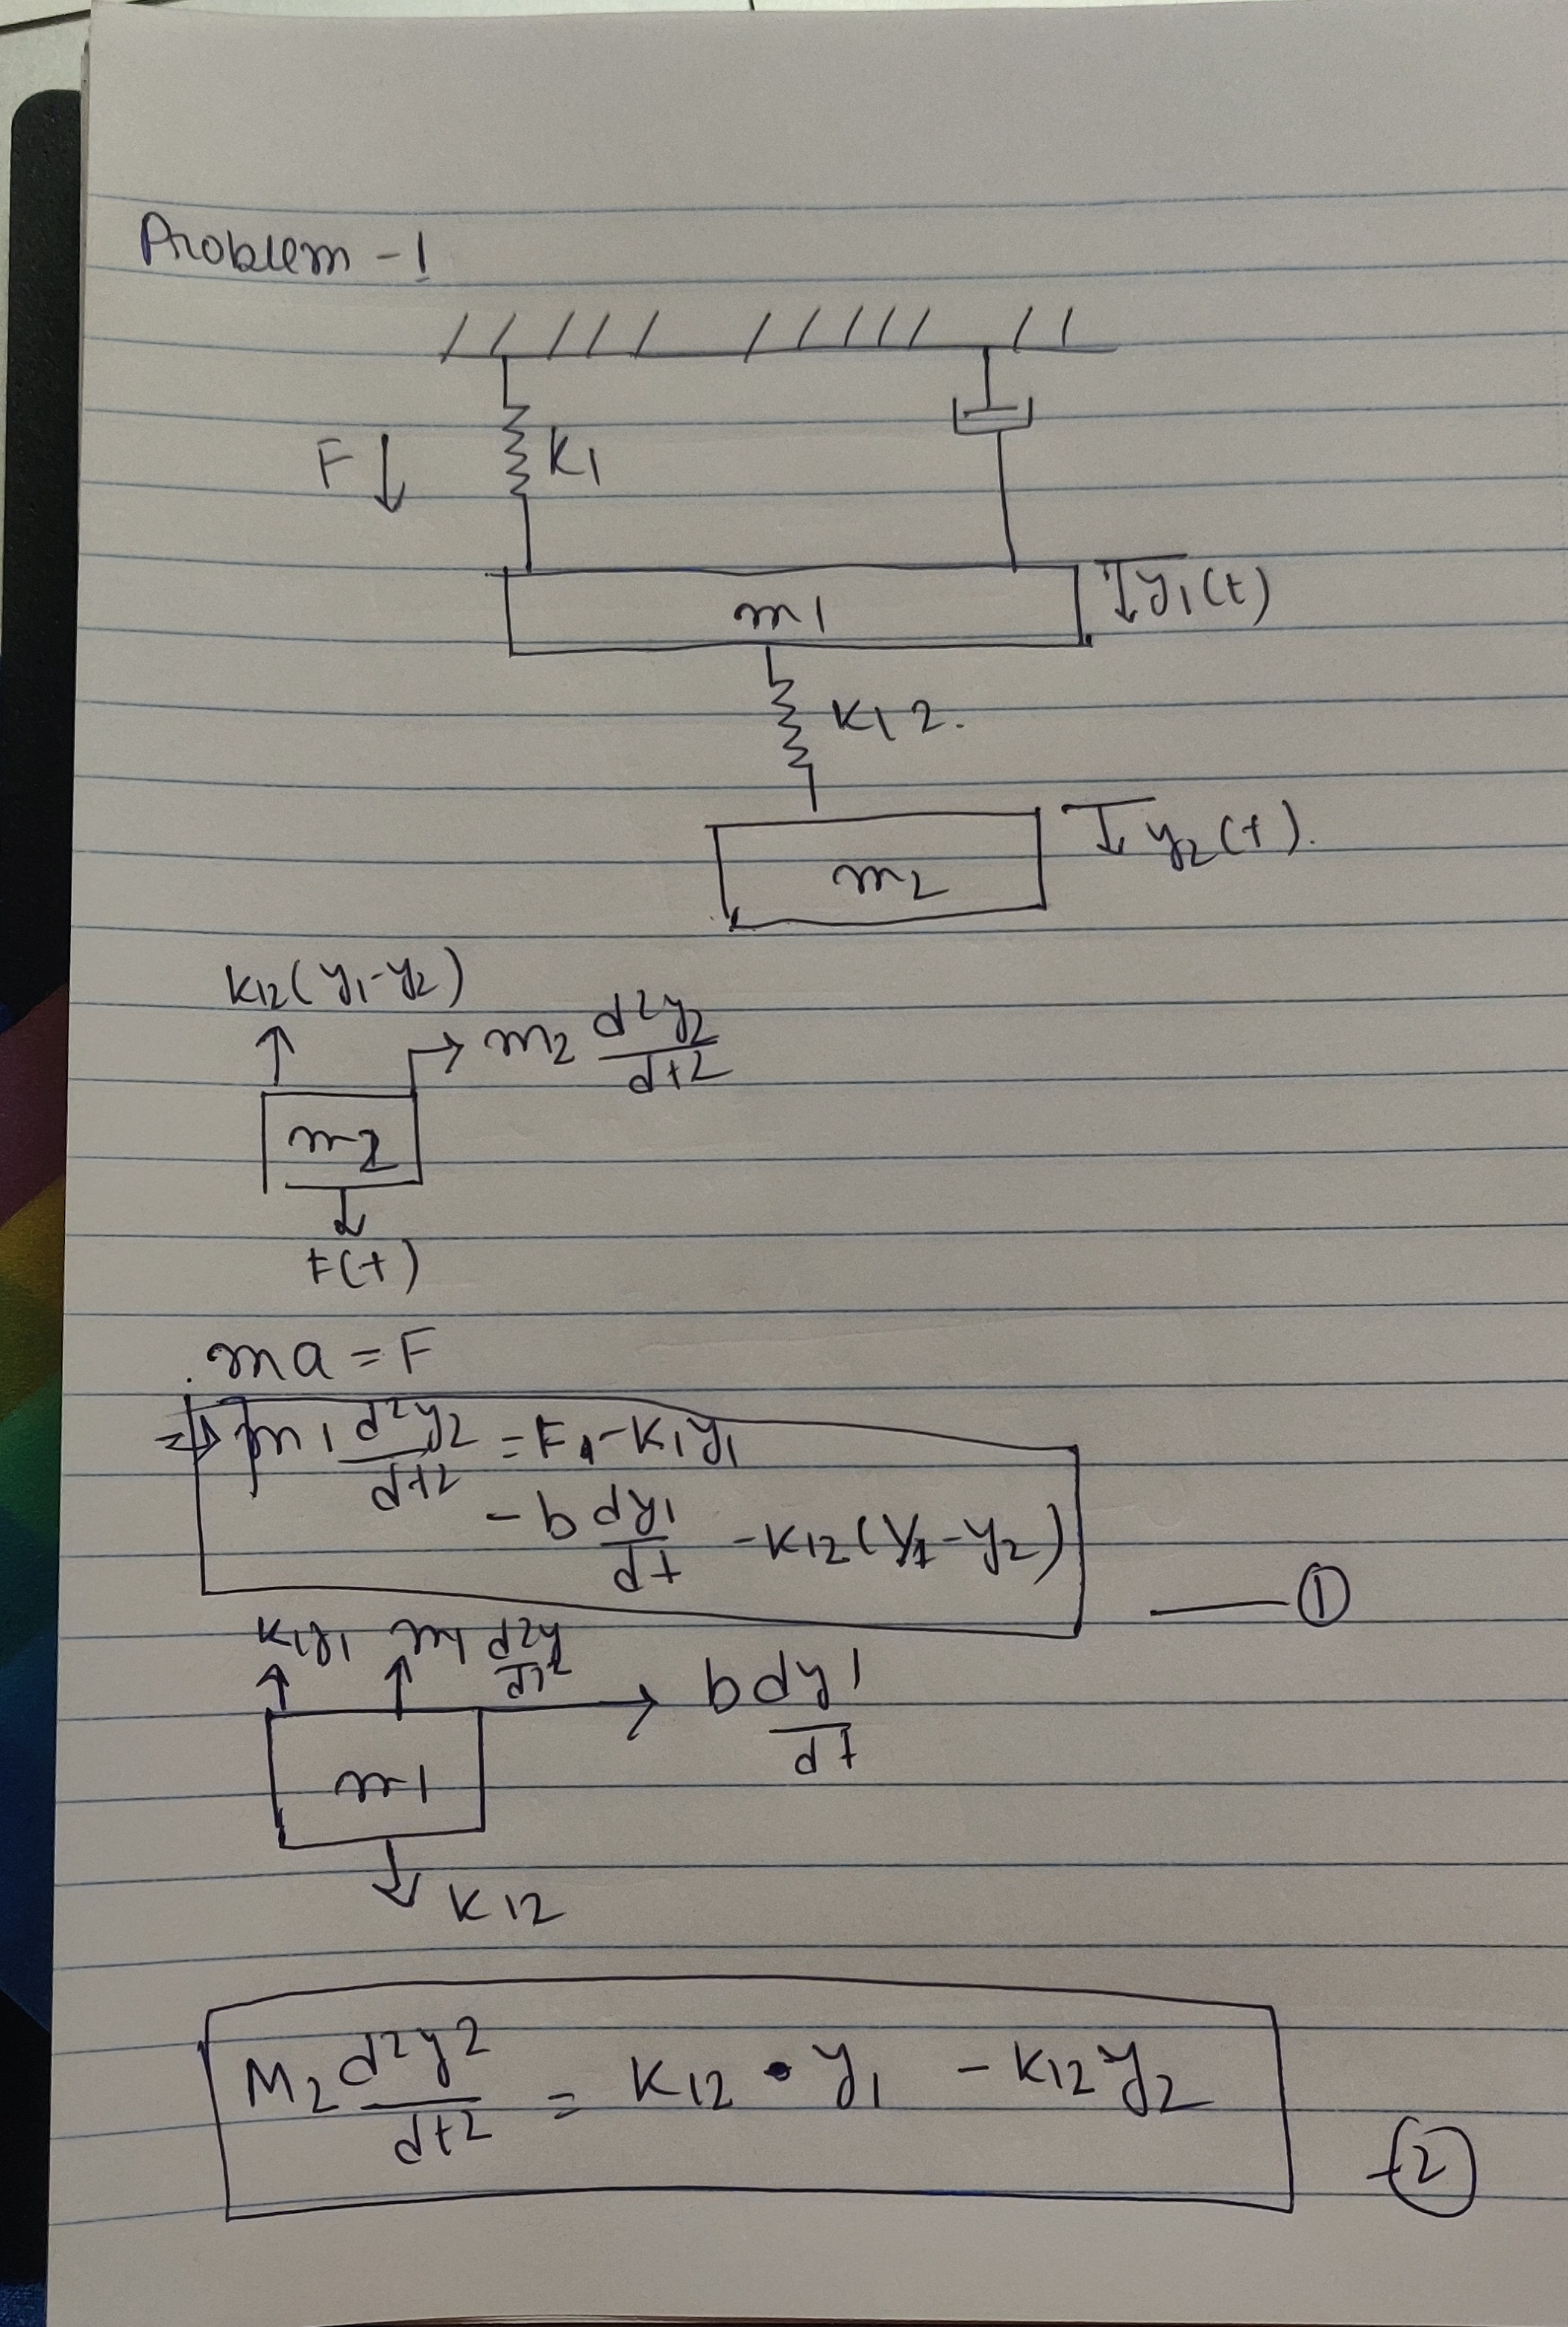 Problem - 1
F ↓ K1
m1 y1(t)
K12.
m2 y2(t).
K12(y1-y2)
m2 d2y2/dt2
m2
F(t)
ma = F
=> m1 d2y2/dt2 = F - K1y1
- b dy1/dt - K12(y1-y2)
1
K1y1 m1 d2y/dt2
b dy1/dt
m1
K12
M2 d2y2/dt2 = K12 • y1 - K12y2
2